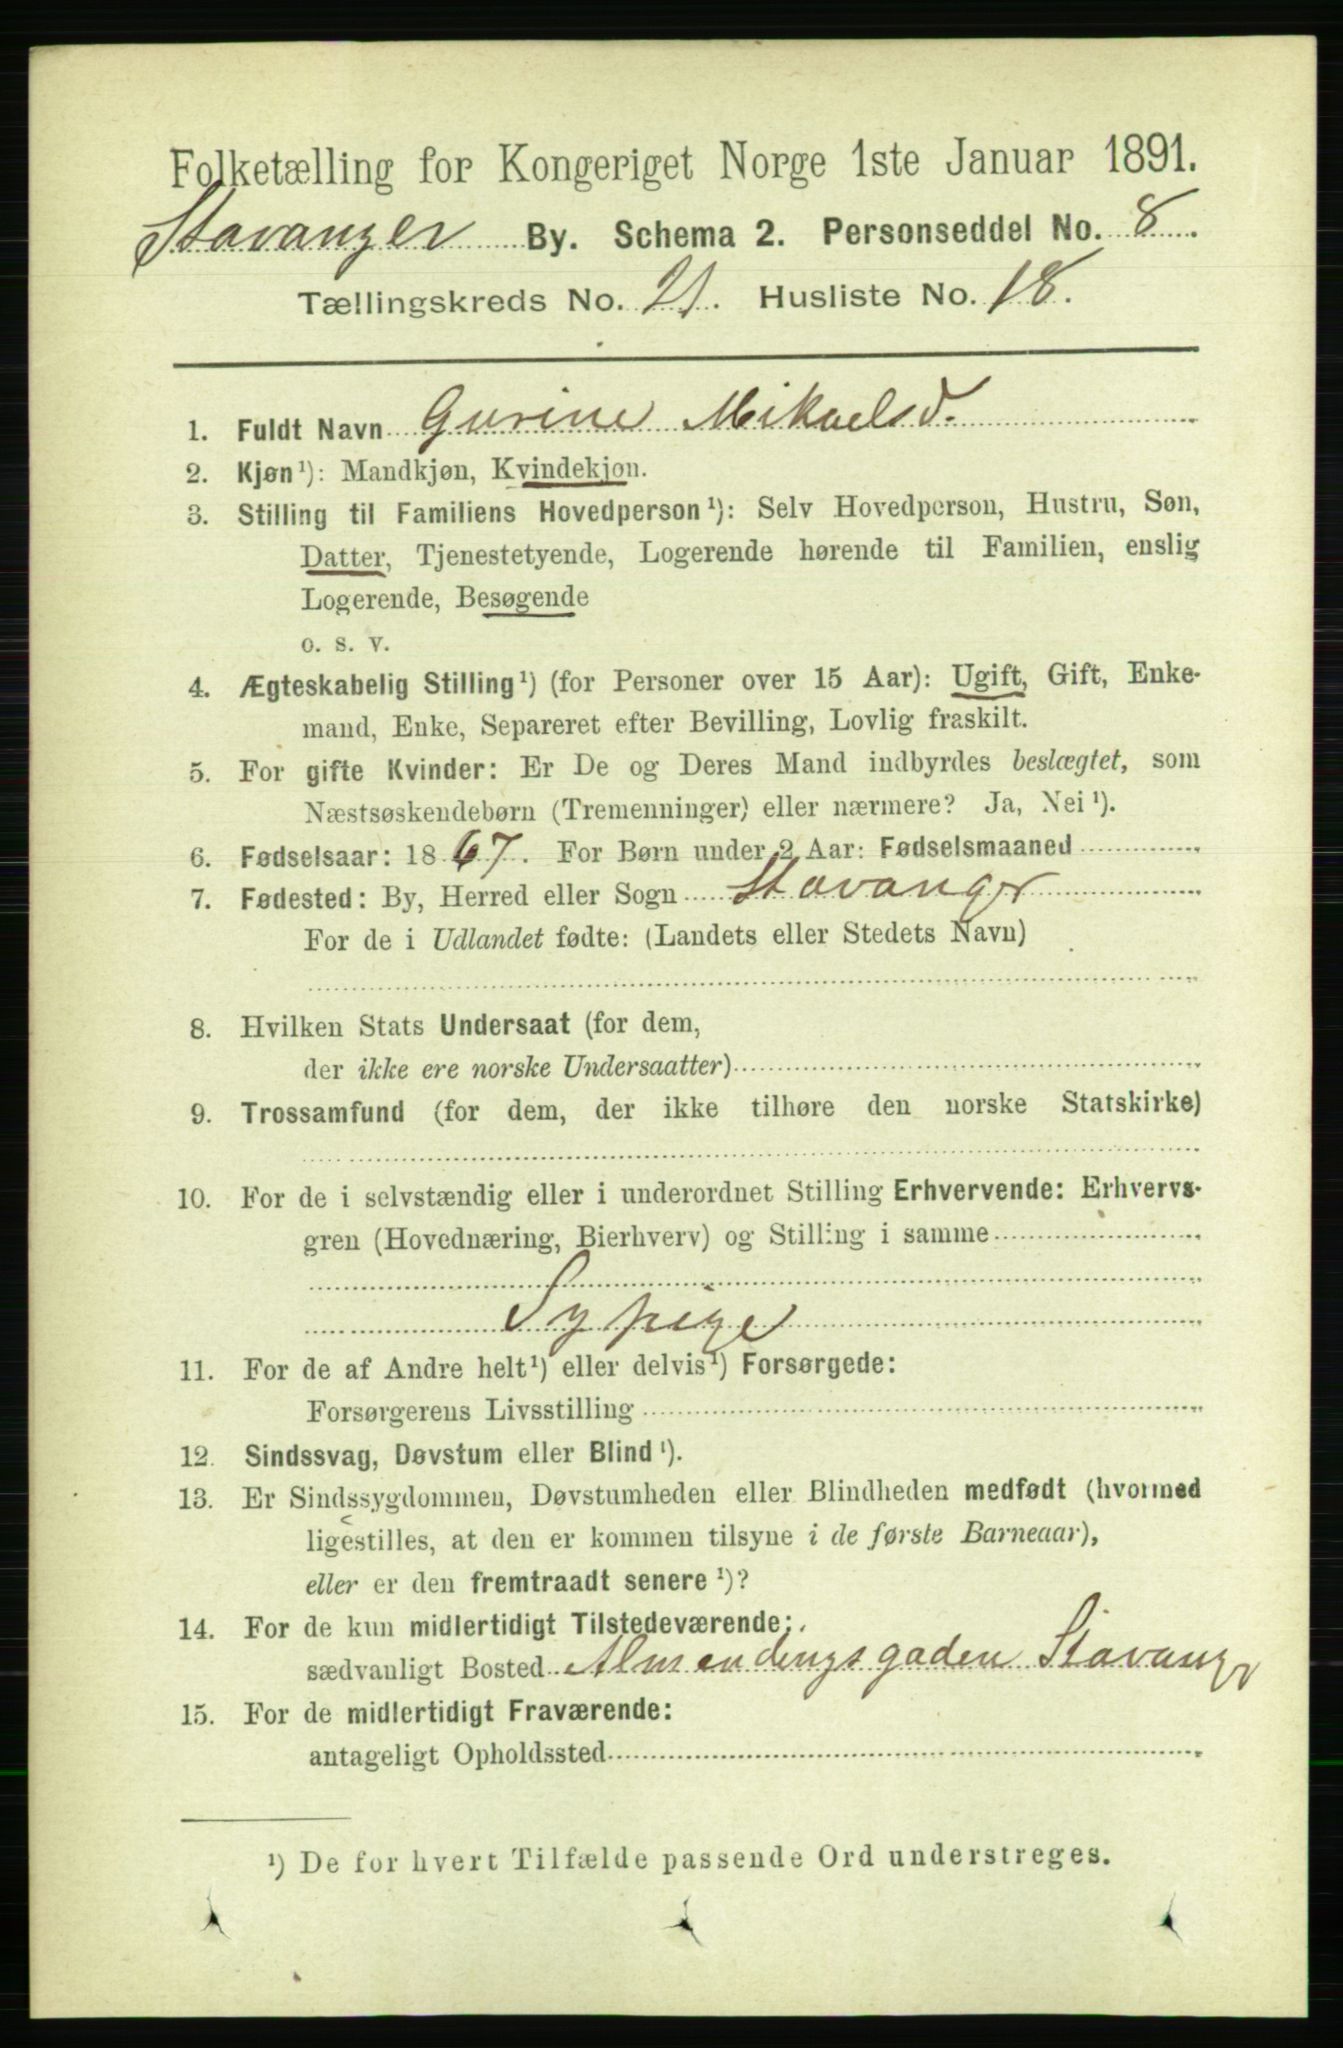 Folketælling for Kongeriget Norge 1ste Januar 1891.
Stavanger By. Schema 2. Personseddel No. 8.
Tællingskreds No. 21. Husliste No. 18.
1. Fuldt Navn Gurine Mikaelsd.
2. Kjøn¹): Mandkjøn, Kvindekjøn.
3. Stilling til Familiens Hovedperson¹): Selv Hovedperson, Hustru, Søn,
Datter, Tjenestetyende, Logerende hørende til Familien, enslig
Logerende, Besøgende
o. s. v.
4. Ægteskabelig Stilling¹) (for Personer over 15 Aar): Ugift, Gift, Enke-
mand, Enke, Separeret efter Bevilling, Lovlig fraskilt.
5. For gifte Kvinder: Er De og Deres Mand indbyrdes beslægtet, som
Næstsøskendebørn (Tremenninger) eller nærmere? Ja, Nei¹).
6. Fødselsaar: 1867. For Børn under 2 Aar: Fødselsmaaned
7. Fødested: By, Herred eller Sogn Stavanger
For de i Udlandet fødte: (Landets eller Stedets Navn)
8. Hvilken Stats Undersaat (for dem,
der ikke ere norske Undersaatter)
9. Trossamfund (for dem, der ikke tilhøre den norske Statskirke)
10. For de i selvstændig eller i underordnet Stilling Erhvervende: Erhvervs-
gren (Hovednæring, Bierhverv) og Stilling i samme
Sypige
11. For de af Andre helt¹) eller delvis¹) Forsørgede:
Forsørgerens Livsstilling
12. Sindssvag, Døvstum eller Blind¹).
13. Er Sindssygdommen, Døvstumheden eller Blindheden medfødt (hvormed
ligestilles, at den er kommen tilsyne i de første Barneaar),
eller er den fremtraadt senere¹)?
14. For de kun midlertidigt Tilstedeværende:
sædvanligt Bosted Almendingsgaden Stavanger
15. For de midlertidigt Fraværende:
antageligt Opholdssted
¹) De for hvert Tilfælde passende Ord understreges.